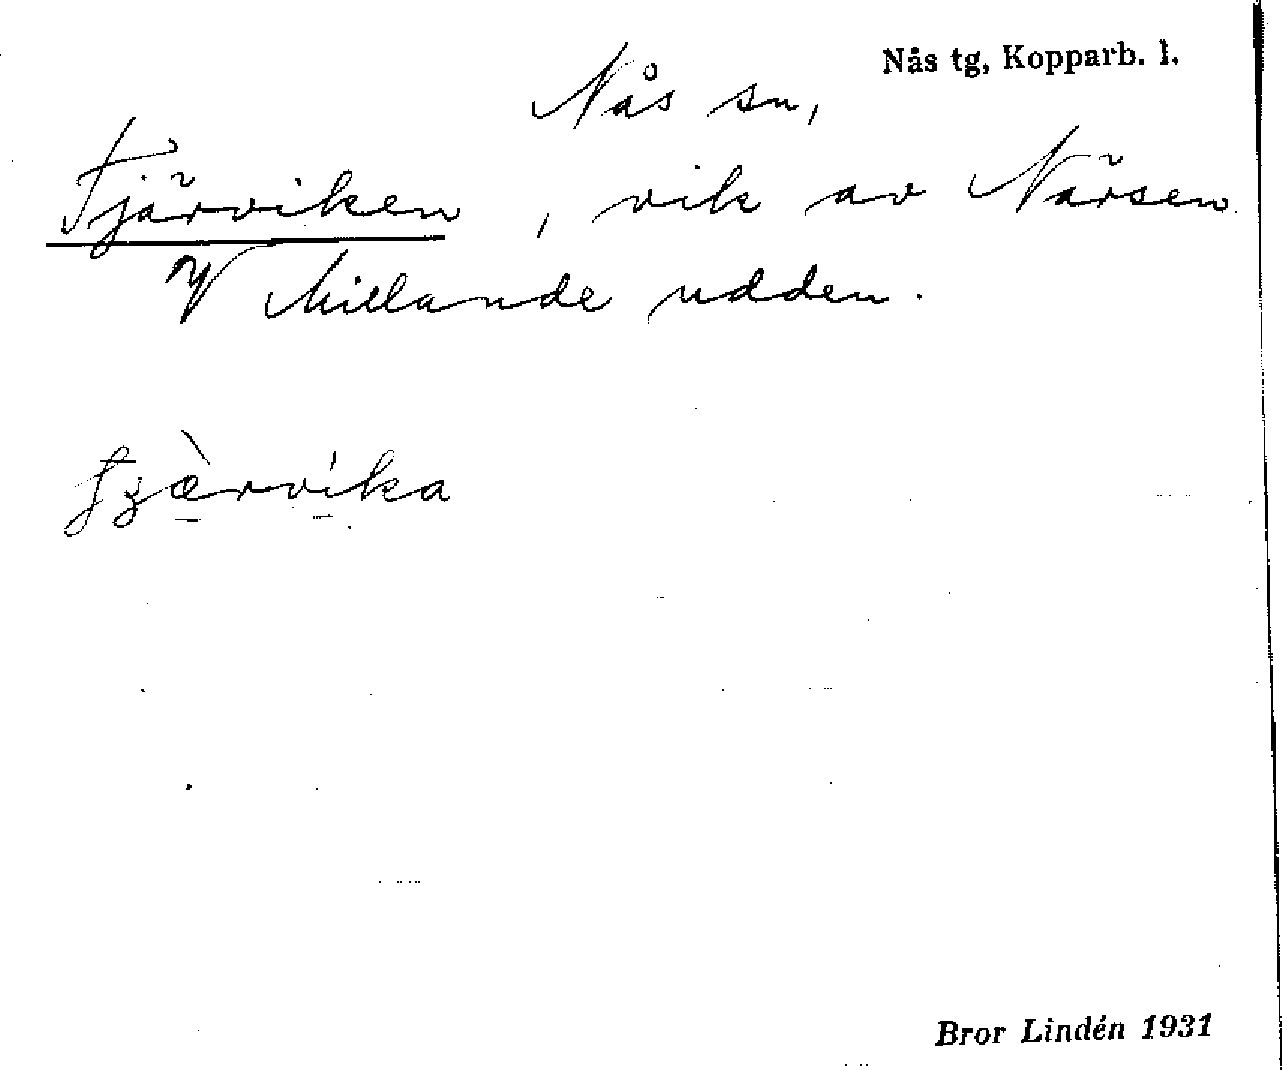 Nås tg, Kopparb. l.
Nås sn,
Fjärviken, vik av Närsen
Millande udden.
fjæ̀rvika
Bror Lindén 1931